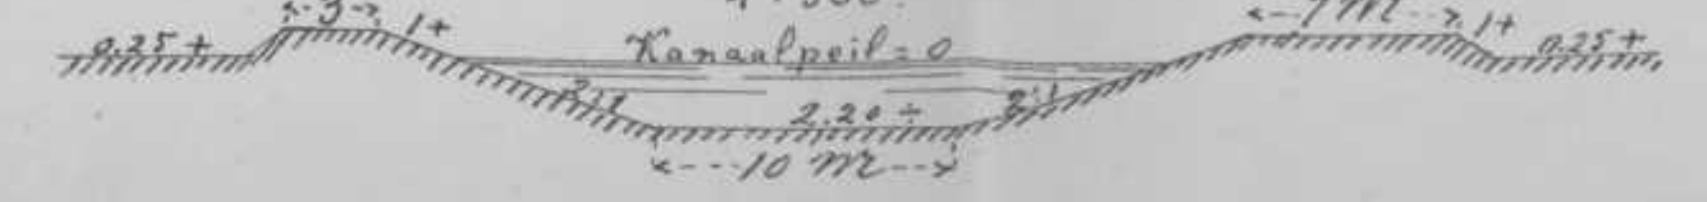 3
7 M
0.25 +
1 +
Kanaalpeil = 0
1 +
0.25 +
2:1
2.20 ÷
2:1
10 M